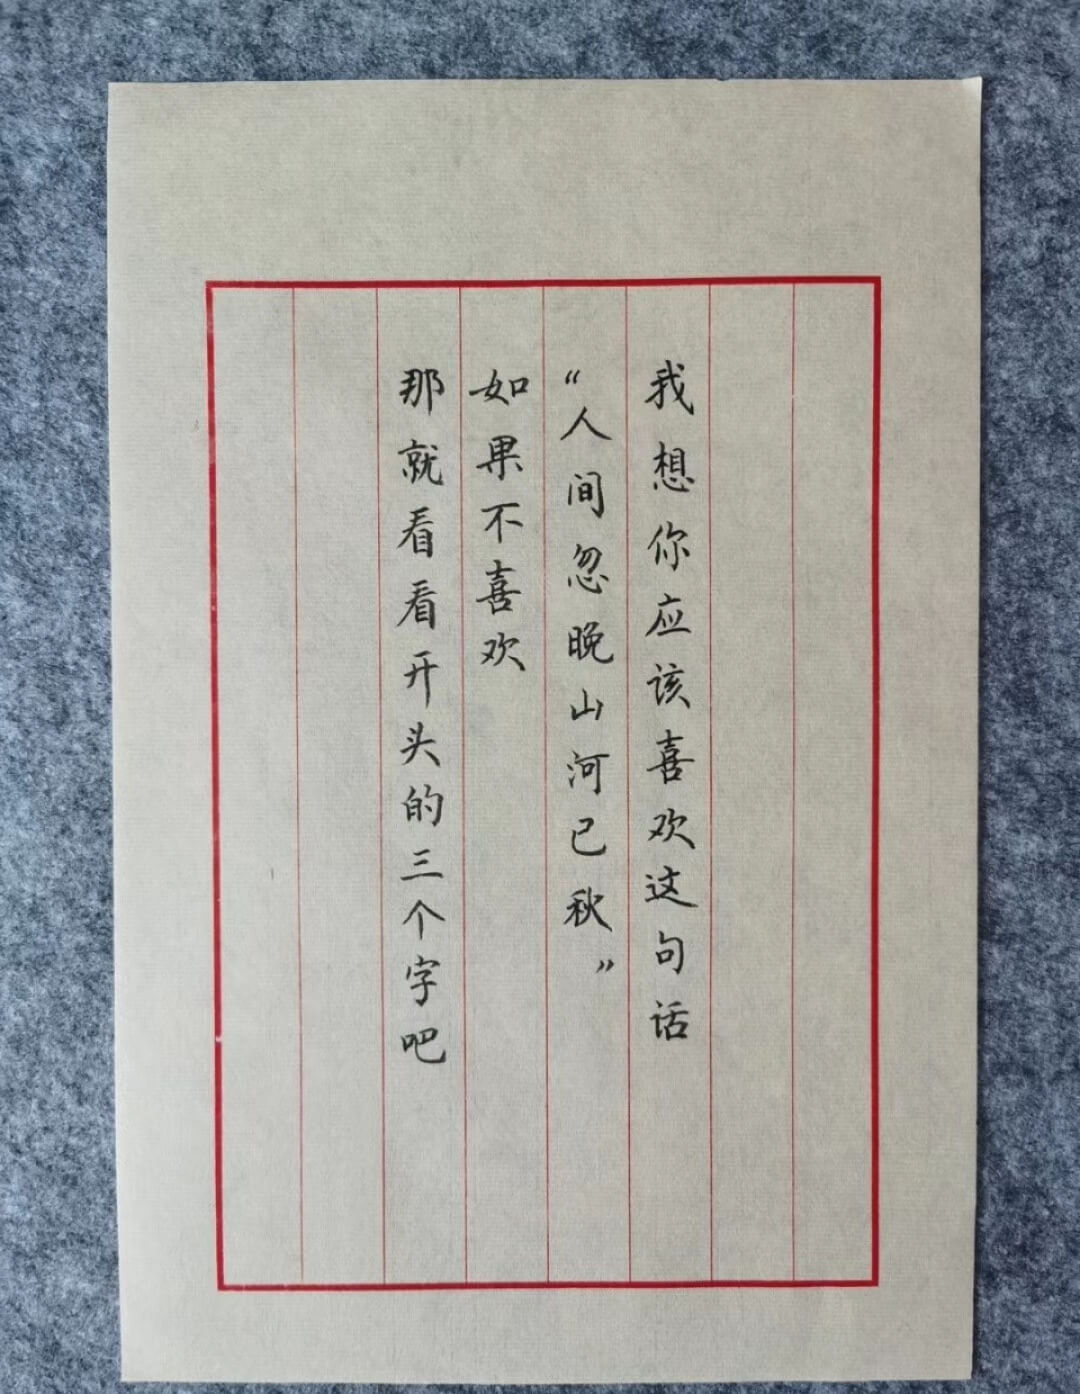 我想你应该喜欢这句话
“人间忽晚山河已秋”
如果不喜欢
那就看看开头的三个字吧